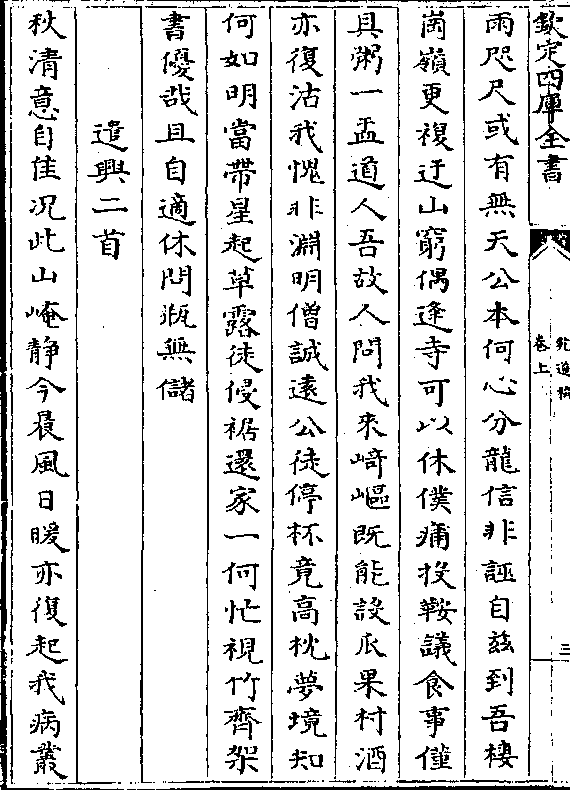 欽定四庫全書
卷上
三
雨咫尺或有無天公本何心分龍信非誣自兹到吾棲
崗嶺更複迂山窮偶逢寺可以休僕痡投鞍議食事僅
具粥一盂道人吾故人問我來﨑嶇既能設瓜果村酒
亦復沽我愧非淵明僧誠遠公徒停杯竟高枕夢境知
何如明當帶星起草露徒侵裾還家一何忙視竹齊架
書優哉且自適休問瓶無儲
遣興二首
秋清意自佳況此山崦静今晨風日暖亦復起我病叢